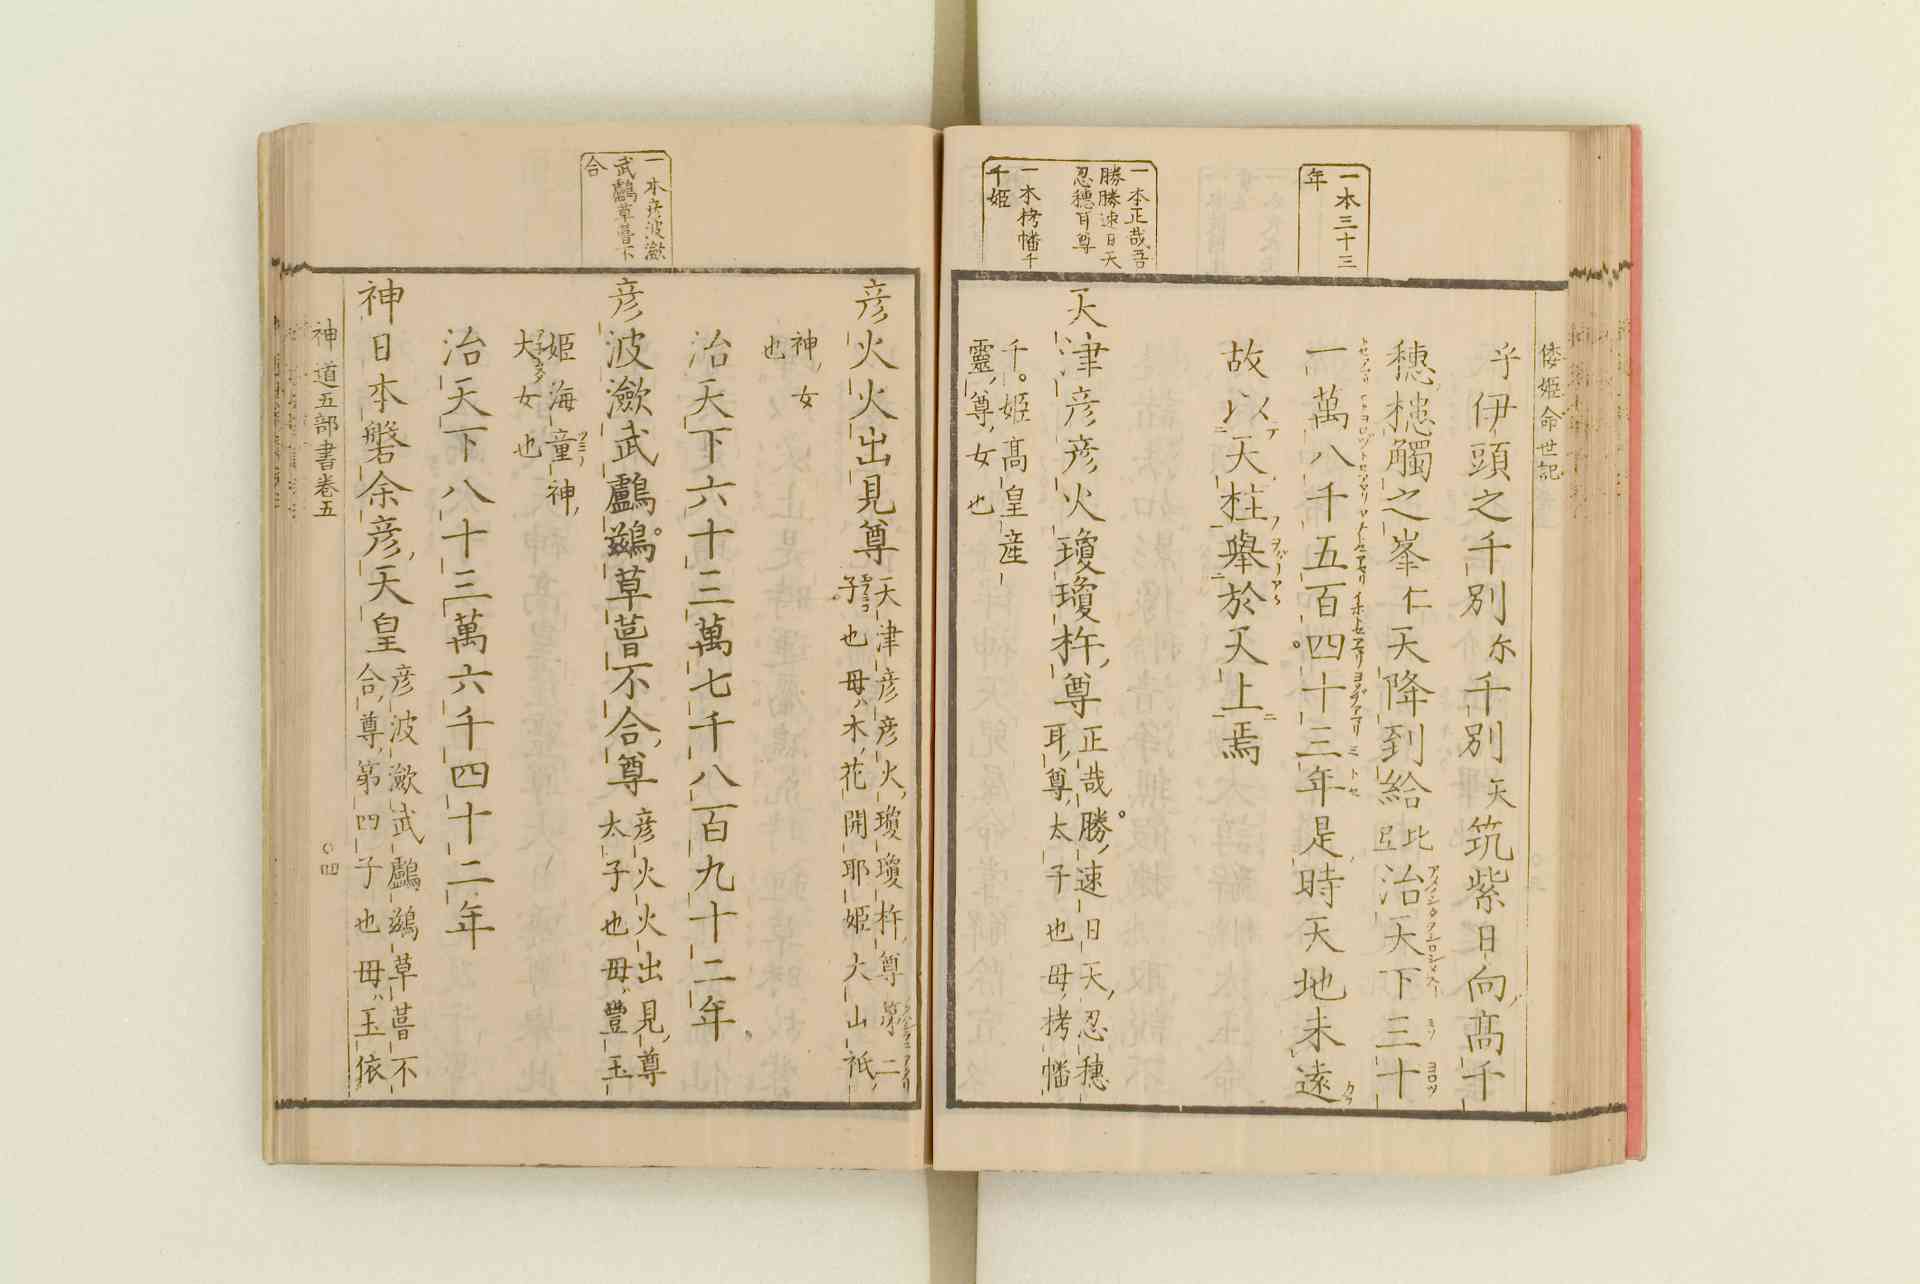 一本三十三
年
一本正哉吾
勝勝速日天
忍穗耳尊
一本栲幡千
千姬
倭姬命世記
乎伊頭之千別尓千別天筑紫日向高千
穗槵觸之峯仁天降到給比治天下三十
一萬八千五百四十三年是時天地未遠
故以天柱擧於天上焉
天津彦彦火瓊瓊杵尊正哉勝速日天忍穗
耳尊太子也母栲幡
千姬高皇産
靈尊女也
一本彦波瀲
武鸕草葺不
合
彦火火出見尊天津彦彦火瓊瓊杵尊第二
子也母木花開耶姬大山祇
神女
也
治天下六十三萬七千八百九十二年
彦波瀲武鸕鷀草葺不合尊彦火火出見尊
太子也母豐玉
姬海童神
大女也
治天下八十三萬六千四十二年
神日本磐余彦天皇彦波瀲武鸕鷀草葺不
合尊第四子也母玉依
神道五部書卷五
四